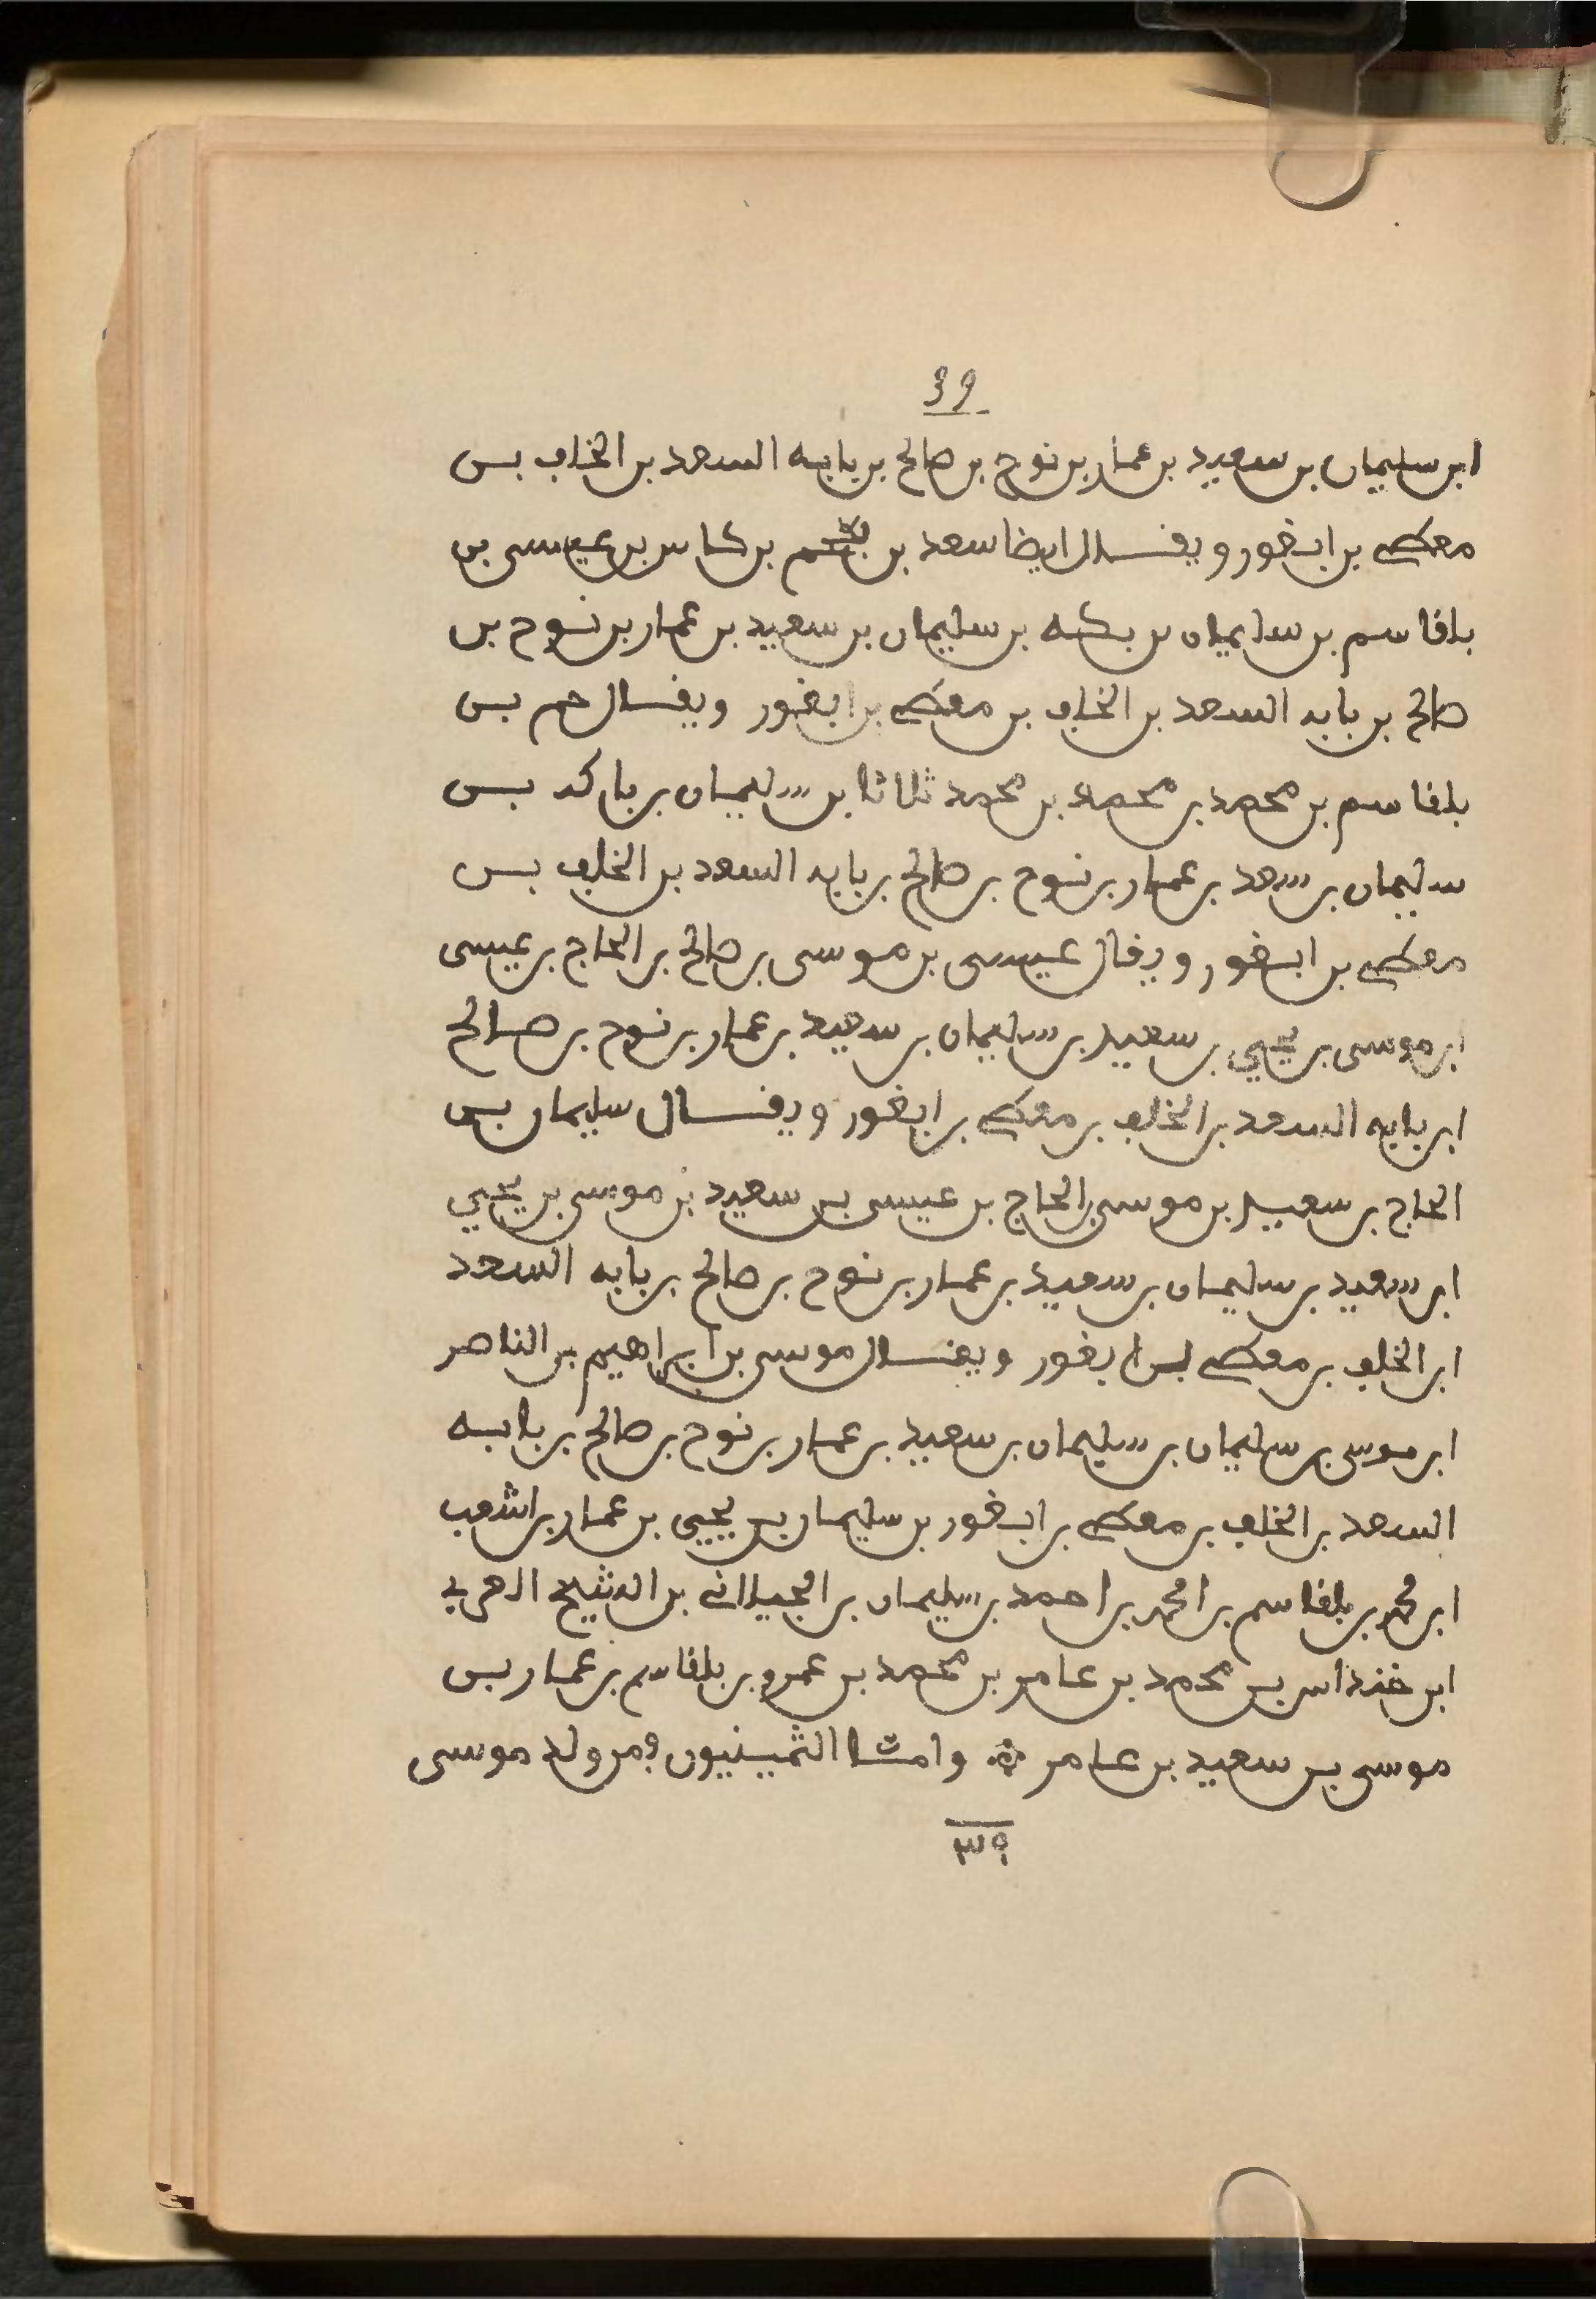 39
ابن سليمان بن سعيد بن عمار بن نوح بن صالح بن بابه السعد بن الخلف بن
معطى بن ابغور ويقال ايضا سعد بن بن كاس بن عيسى بن
بلقاسم بن سليمان بن بكه بن سليمان بن سعيد بن عمار بن نوح بن
صالح بن بابه السعد بن الخلف بن معطى بن ابغور ويقال حم بن
بلقاسم بن محمد بن محمد بن محمد ثلاثا بن سليمان بن باركه بن
سليمان بن سعد بن عمار بن نوح بن صالح بن بابه السعد بن الخلف بن
معطى بن ابغور ويقال عيسى بن موسى بن صالح بن الحاج بن عيسى
ابن موسى بن يحيى بن سعيد بن سليمان بن سعيد بن عمار بن نوح بن صالح
ابن بابه السعد بن الخلف بن معطى بن ابغور ويقال سليمان بن
الحاج بن سعيد بن موسى بن الحاج بن عيسى بن سعيد بن موسى بن يحيي
ابن سعيد بن سليمان بن سعيد بن عمار بن نوح بن صالح بن بابه السعد
ابن الخلف بن معطى بن ابغور ويقال موسى بن ابراهيم بن الناصر
ابن موسى بن سليمان بن سليمان بن سعيد بن عمار بن نوح بن صالح بن بابه
السعد بن الخلف بن معطى بن ابغور بن سليمان بن يحيى بن عمار بن اشعب
ابن محمد بن بلقاسم بن امحمد بن احمد بن سليمان بن الجيلاني بن الشيخ العربي
ابن خنداس بن محمد بن عامر بن محمد بن عمرو بن بلقاسم بن عمار بن
موسى بن سعيد بن عامر وامثا الثمينيون فمن ولد موسى
٣٩